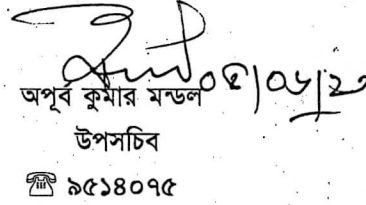 ০৫/০৬/২০
অপূর্ব কুমার মন্ডল
উপসচিব
☎ ৯৫১৪০৭৫